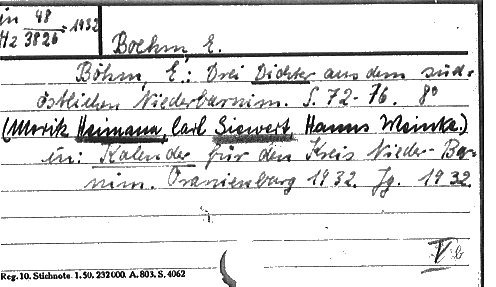 in 48 : 1932
Hz 3826
Boehm, E.
Böhm, E.: Drei Dichter aus dem süd-
östlichen Niederbarnim. S. 72-76. 8°
(Moritz Heimann, Carl Siewert, Hanns Weinke.)
in: Kalender für den Kreis Nieder-Bar-
nim. Oranienburg 1932. Jg. 1932.
Reg. 10. Stichnote. 1. 50. 232000. A. 803. S. 4062